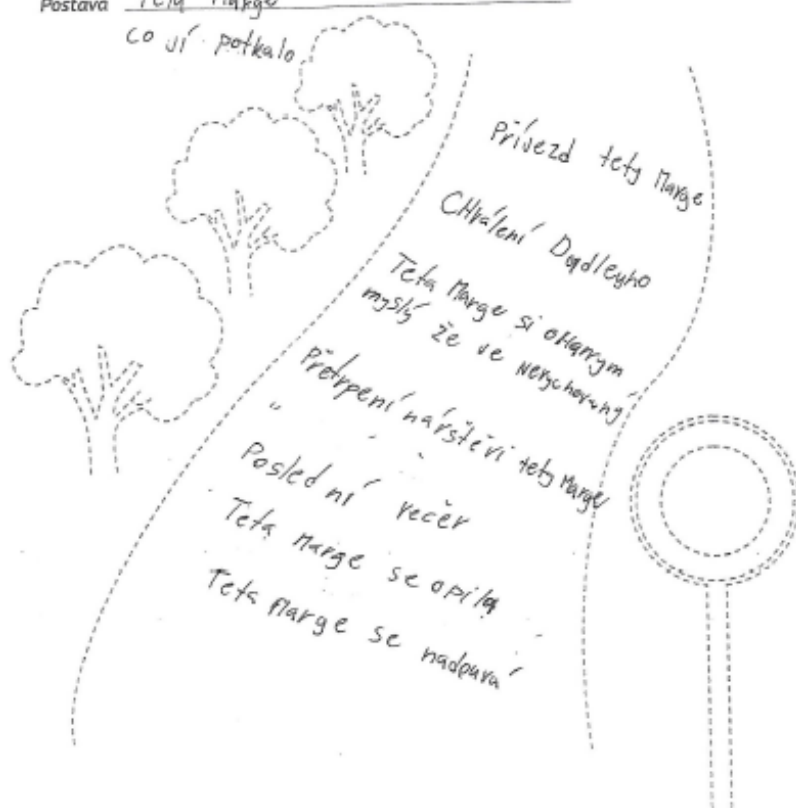 Postava Teta Marge
co jí potkalo
Přívezd tety Marge
CHválení Dudleyho
Teta Marge si oHarrym
myslý že ve nevychovaný
Přetrpení nárštěvi tety Marge
Poslední večer
Teta Marge se opila
Teta Marge se nadouvá